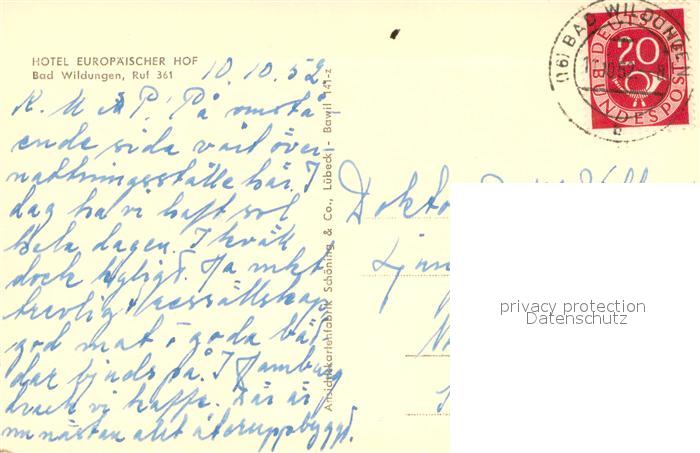 HOTEL EUROPÄISCHER HOF
Bad Wildungen, Ruf 361
10.10.52
K. M & P! På omstå-
ende sida vårt över-
nattningsställe här. I
dag ha vi haft sol
hela dagen. I kväll
dock kyligt. Ha mkt
trevligt ressällskap
god mat, goda bäd-
dar bjuds på. I Hamburg
drack vi kaffe. Där är
nu nästan allt återuppbyggt.
Ansichtkartenfabrik Schöning & Co., Lübeck - Bawil 141-z
(16) BAD WILDUNGEN
DEUTSCHE
BUNDESPOST
20
Doktor
privacy protection
Datenschutz